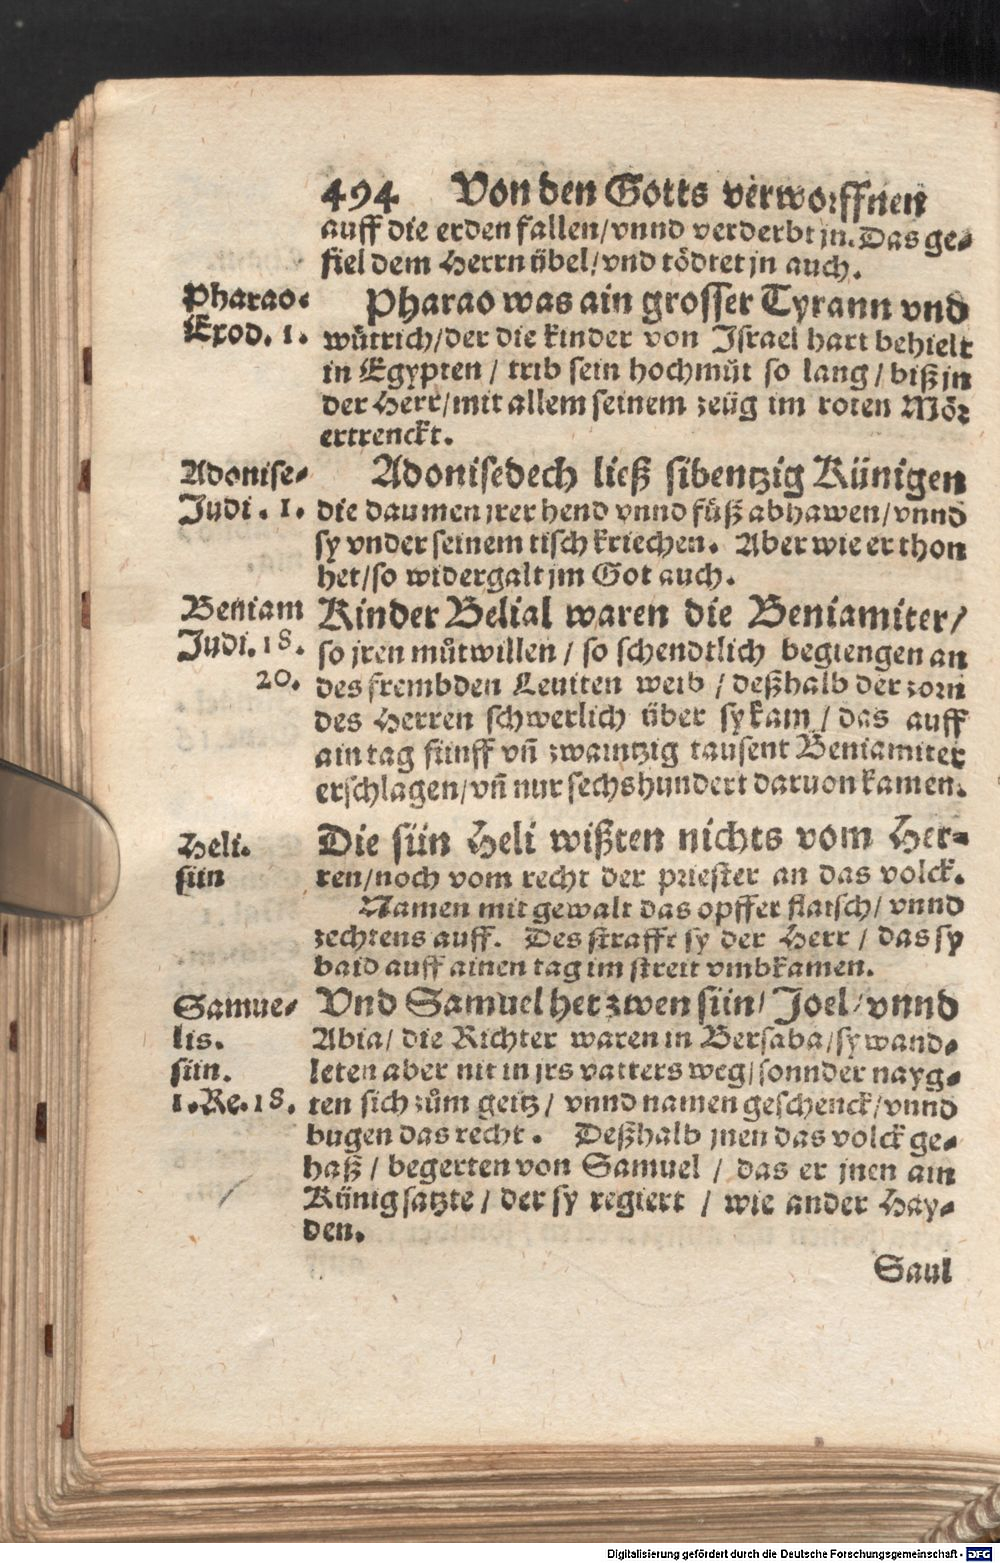 494 Von den Gotts verworffnen
auff die erden fallen/vnnd verderbt jn. Das ge-
fiel dem Herrn übel/vnd tödtet jn auch.
Pharao-
Exod. 1.
Pharao was ain grosser Tyrann vnd
wůtrich/der die kinder von Israel hart behielt
in Egypten / trib sein hochmůt so lang / biß jn
der Herr/mit allem seinem zeüg im roten Mör
ertrenckt.
Adonise-
Judi . 1.
Adonisedech ließ sibentzig Künigen
die daumen jrer hend vnnd fůß abhawen/vnnd
sy vnder seinem tisch kriechen. Aber wie er thon
het/so widergalt jm Got auch.
Beniam
Judi. 18.
20.
Kinder Belial waren die Beniamiter/
so jren můtwillen / so schendtlich begiengen an
des frembden Leuiten weib / deßhalb der zorn
des Herren schwerlich über sy kam / das auff
ain tag fünff vñ zwaintzig tausent Beniamiter
erschlagen/vñ nur sechshundert daruon kamen.
Heli.
sün
Die sün Heli wißten nichts vom Her-
ren/noch vom recht der priester an das volck.
Namen mit gewalt das opffer flaisch/ vnnd
zechtens auff. Des strafft sy der Herr / das sy
baid auff ainen tag im streit vmbkamen.
Samue-
lis.
sün.
1.Re.18.
Vnd Samuel het zwen sün/ Joel/vnnd
Abia/ die Richter waren in Bersaba/sy wand-
leten aber nit in jrs vatters weg/sonnder nayg-
ten sich zům geitz/ vnnd namen geschenck/vnnd
bugen das recht. Deßhalb jnen das volck ge-
haß / begerten von Samuel / das er jnen ain
Künig satzte / der sy regiert / wie ander Hay-
den.
Saul
Digitalisierung gefördert durch die Deutsche Forschungsgemeinschaft - DFG